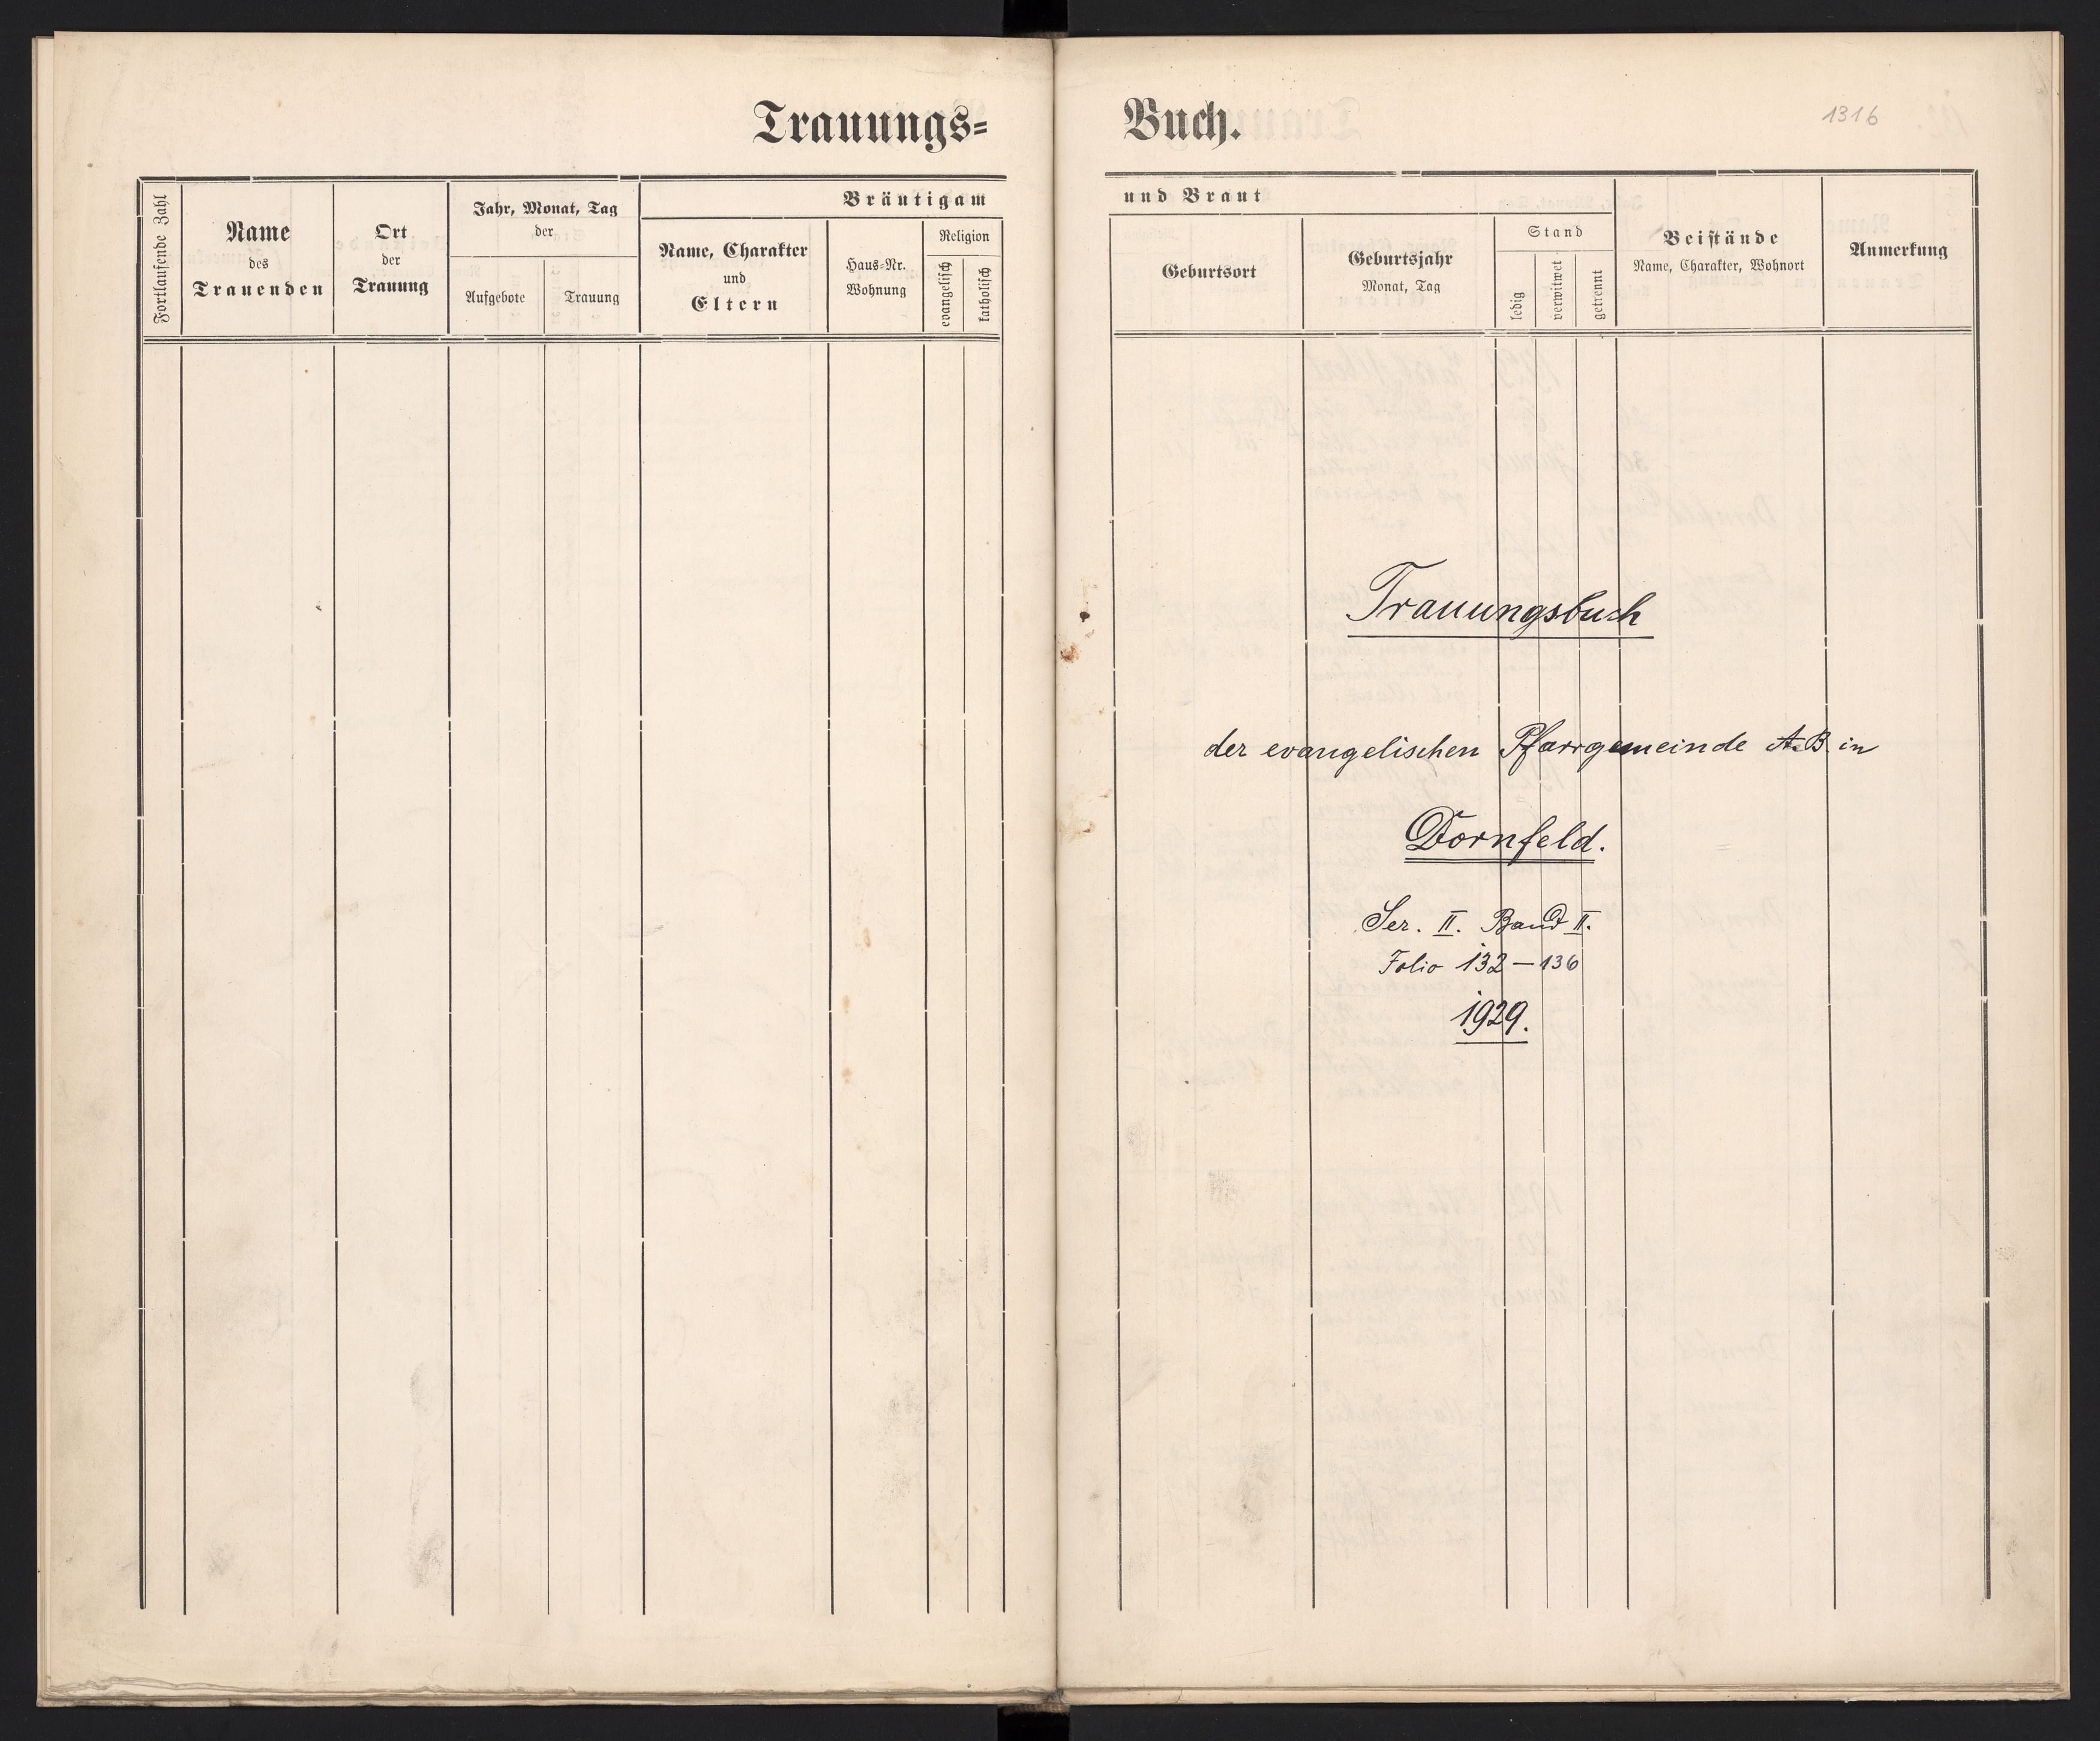 Trauungs=
Fortlaufende Zahl
Name
des
Trauenden
Ort
der
Trauung
Jahr, Monat, Tag
der
Aufgebote
Trauung
Bräutigam
Name, Charakter
und
Eltern
Haus=Nr.
Wohnung
Religion
evangelisch
katholisch
Buch.
1316
und Braut
Geburtsort
Geburtsjahr
Monat, Tag
Stand
ledig
verwitwet
getrennt
Beistände
Name, Charakter, Wohnort
Anmerkung
Trauungsbuch
der evangelischen Pfarrgemeinde A.B. in
Dornfeld.
Ser. II. Band II.
Folio 132 – 136
1929.